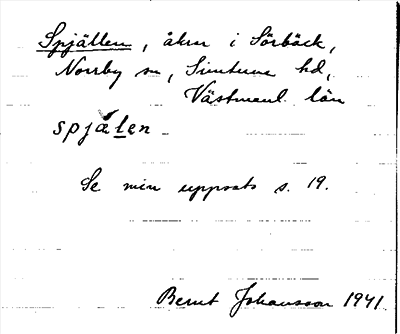 Spjällen, åkrar i Sörbäck,
Norrby sn, Simtuna hd,
Västmanl. län
spjälen
Se min uppsats s. 19.
Bernt Johansson 1941.